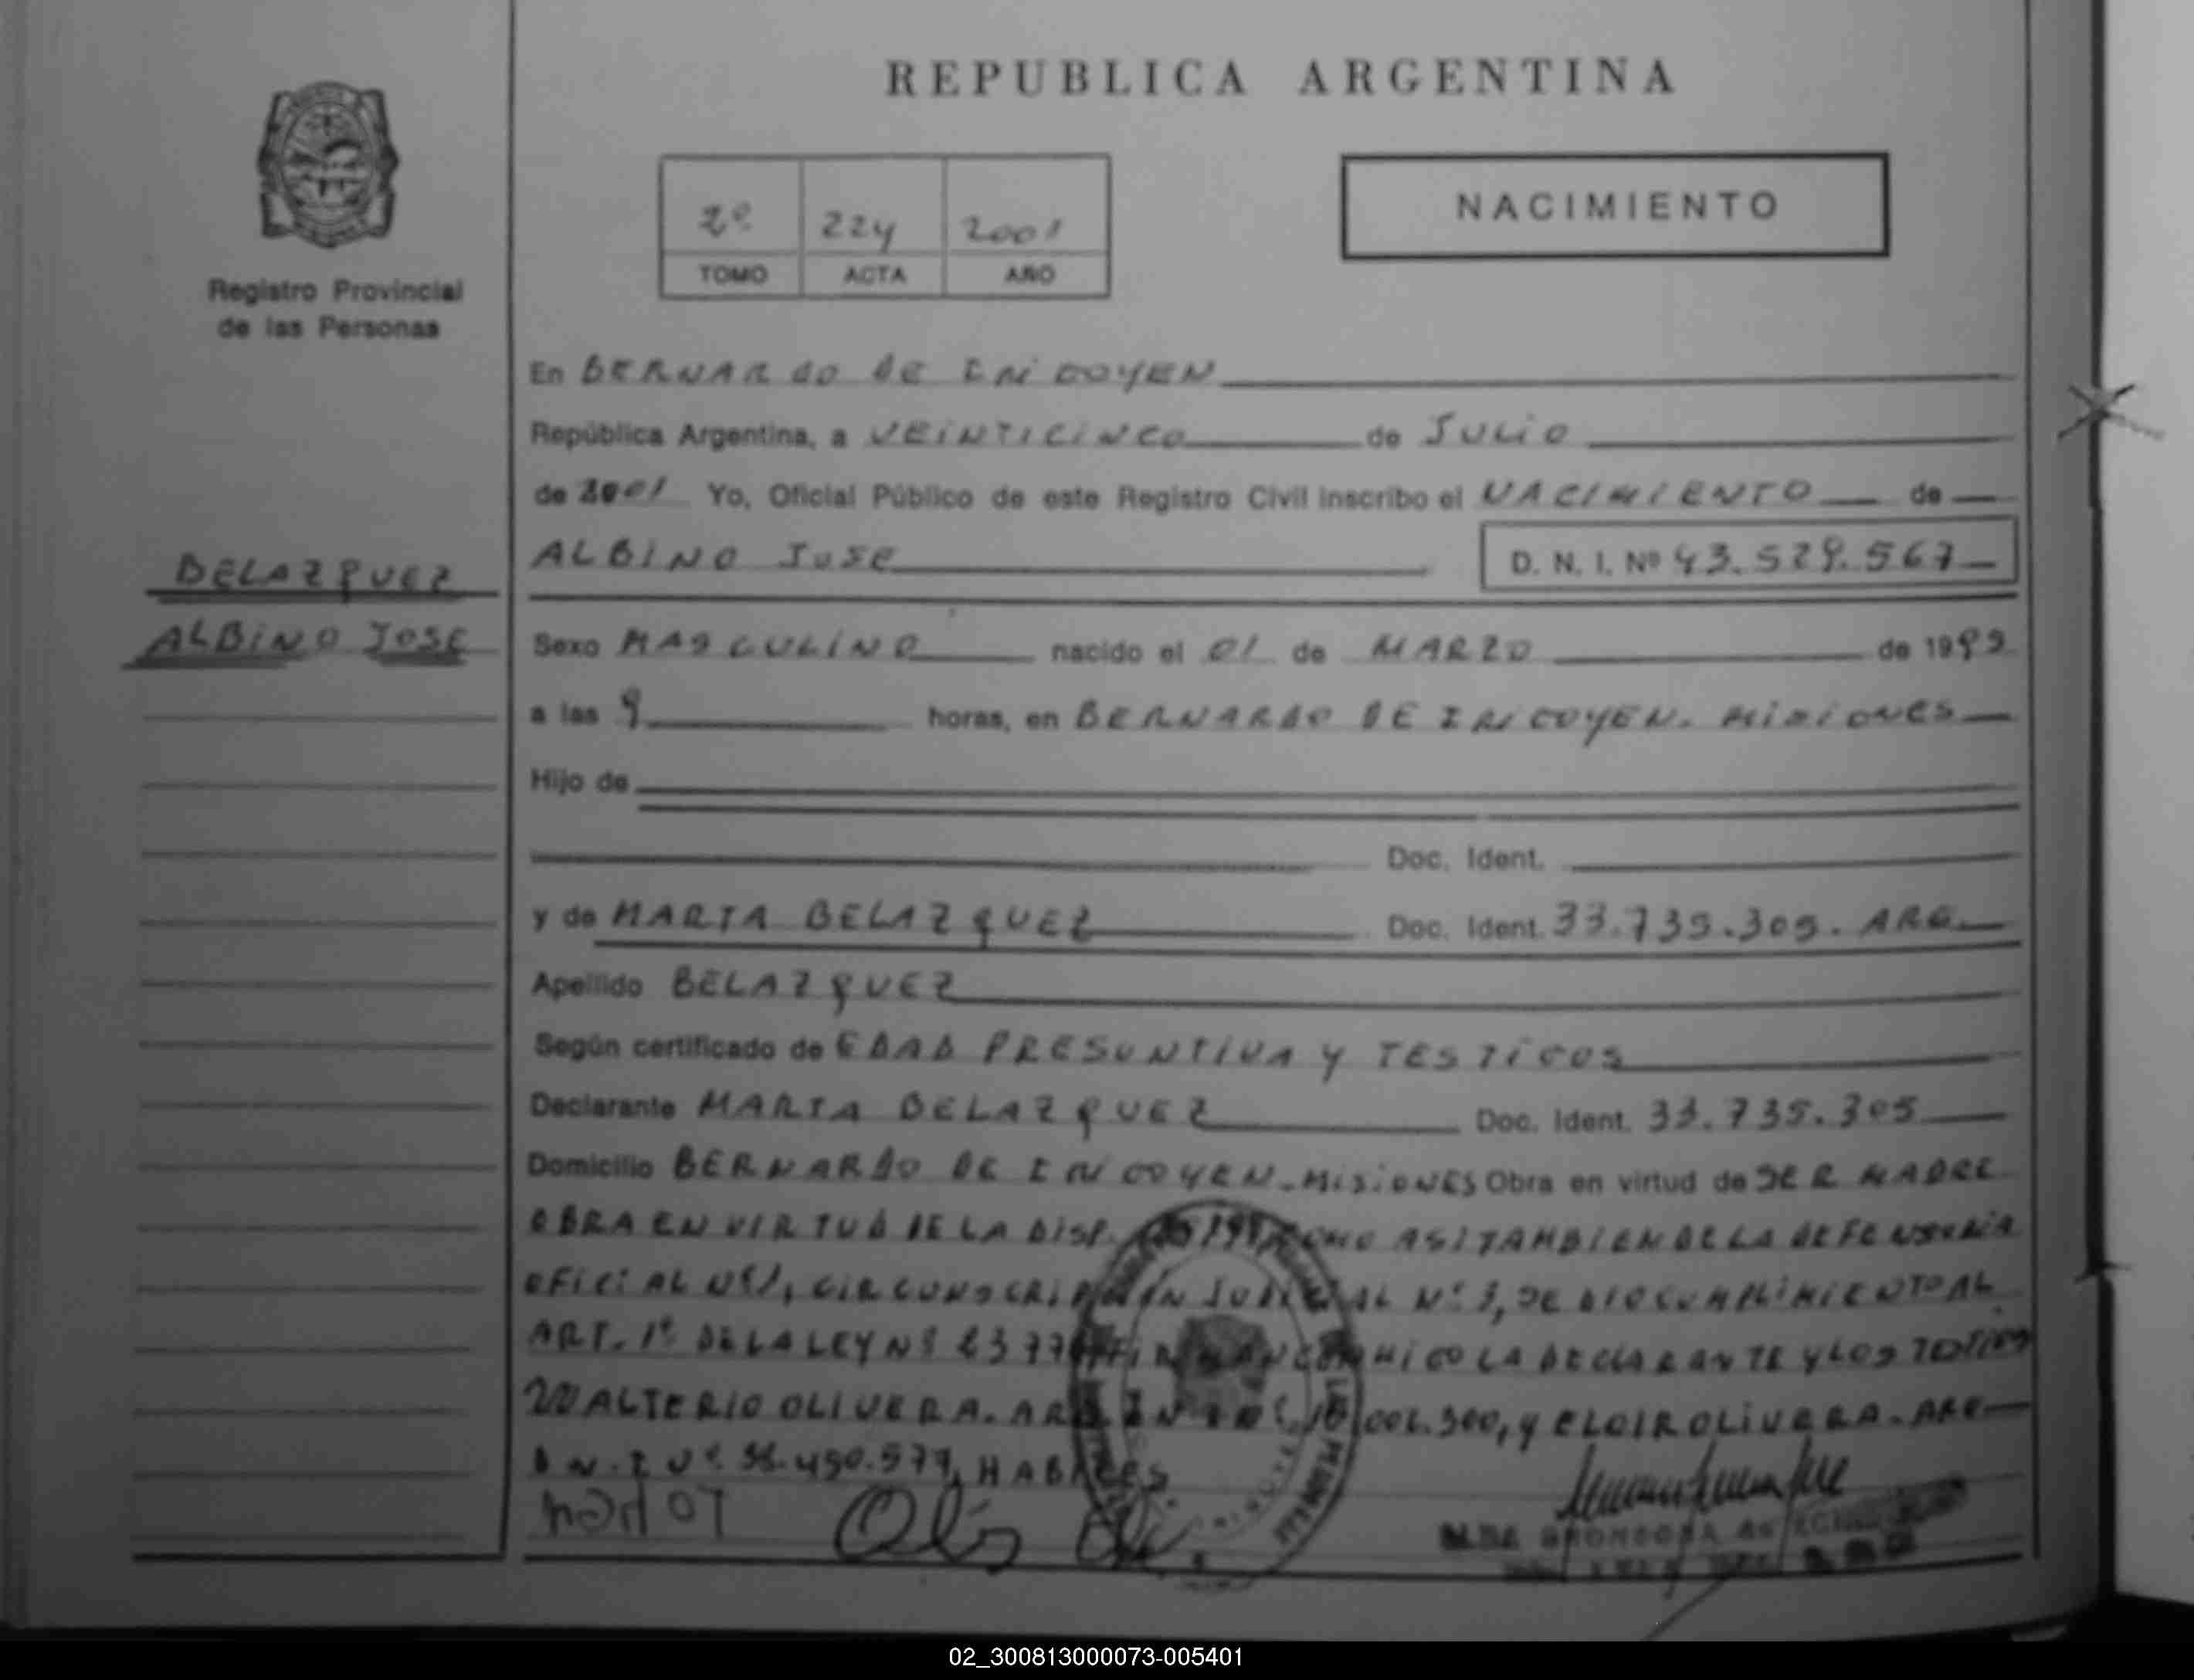 REPUBLICA ARGENTINA
NACIMIENTO
2º 224 2001
TOMO ACTA AÑO
Registro Provincial
de las Personas
En BERNARDO DE IRIGOYEN
República Argentina, a VEINTICINCO de JULIO
de 2001 Yo, Oficial Público de este Registro Civil inscribo el NACIMIENTO de
ALBINO JOSE D. N. I. Nº 43.529.567
BELAZQUEZ
ALBINO JOSE
Sexo MASCULINO nacido el 01 de MARZO de 19
a las 9 horas, en BERNARDO DE IRIGOYEN. MISIONES
Hijo de
Doc. Ident.
y de MARTA BELAZQUEZ Doc. Ident. 33.735.305. ARG.
Apellido BELAZQUEZ
Según certificado de EDAD PRESUNTIVA Y TESTIGOS
Declarante MARTA BELAZQUEZ Doc. Ident. 33.735.305
Domicilio BERNARDO DE IRIGOYEN. MISIONES Obra en virtud de SER MADRE
OBRA EN VIRTUD DE LA DISP. COMO ASI TAMBIEN DE LA DEFENSORIA
OFICIAL Nº1, CIRCUNSCRIPCIÓN JUDICIAL Nº 3, SE DIO CUMPLIMIENTO AL
ART. 1º DE LA LEY Nº CONMIGO LA DECLARANTE Y LOS TESTIGOS
WALTERIO OLIVERA. ARG. y ELOIR OLIVERA. ARG
D.N.I Nº HABILES
02_300813000073-005401